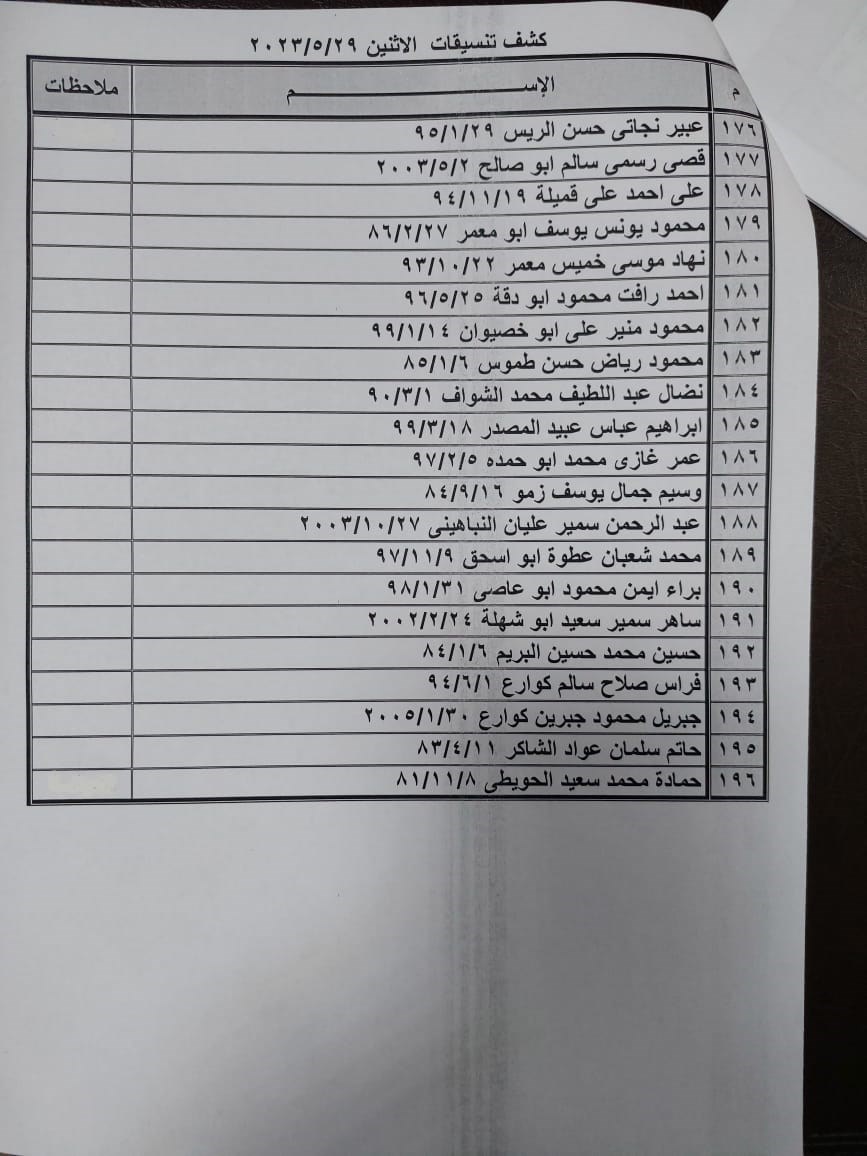 كشف تنسيقات الاثنين ٢٠٢٣/٥/٢٩
م الإســـــــــــــــم ملاحظات
١٧٦ عبير نجاتى حسن الريس ٩٥/١/٢٩
١٧٧ قصى رسمى سالم ابو صالح ٢٠٠٣/٥/٢
١٧٨ على احمد على قميلة ٩٤/١١/١٩
١٧٩ محمود يونس يوسف ابو معمر ٨٦/٢/٢٧
١٨٠ نهاد موسى خميس معمر ٩٣/١٠/٢٢
١٨١ احمد رافت محمود ابو دقة ٩٦/٥/٢٥
١٨٢ محمود منير على ابو خصيوان ٩٩/١/١٤
١٨٣ محمود رياض حسن طموس ٨٥/١/٦
١٨٤ نضال عبد اللطيف محمد الشواف ٩٠/٣/١
١٨٥ ابراهيم عباس عبيد المصدر ٩٩/٣/١٨
١٨٦ عمر غازى محمد ابو حمده ٩٧/٢/٥
١٨٧ وسيم جمال يوسف زمو ٨٤/٩/١٦
١٨٨ عبد الرحمن سمير عليان النباهينى ٢٠٠٣/١٠/٢٧
١٨٩ محمد شعبان عطوة ابو اسحق ٩٧/١١/٩
١٩٠ براء ايمن محمود ابو عاصى ٩٨/١/٣١
١٩١ ساهر سمير سعيد ابو شهلة ٢٠٠٢/٢/٢٤
١٩٢ حسين محمد حسين البريم ٨٤/١/٦
١٩٣ فراس صلاح سالم كوارع ٩٤/٦/١
١٩٤ جبريل محمود جبرين كوارع ٢٠٠٥/١/٣٠
١٩٥ حاتم سلمان عواد الشاكر ٨٣/٤/١١
١٩٦ حمادة محمد سعيد الحويطى ٨١/١١/٨